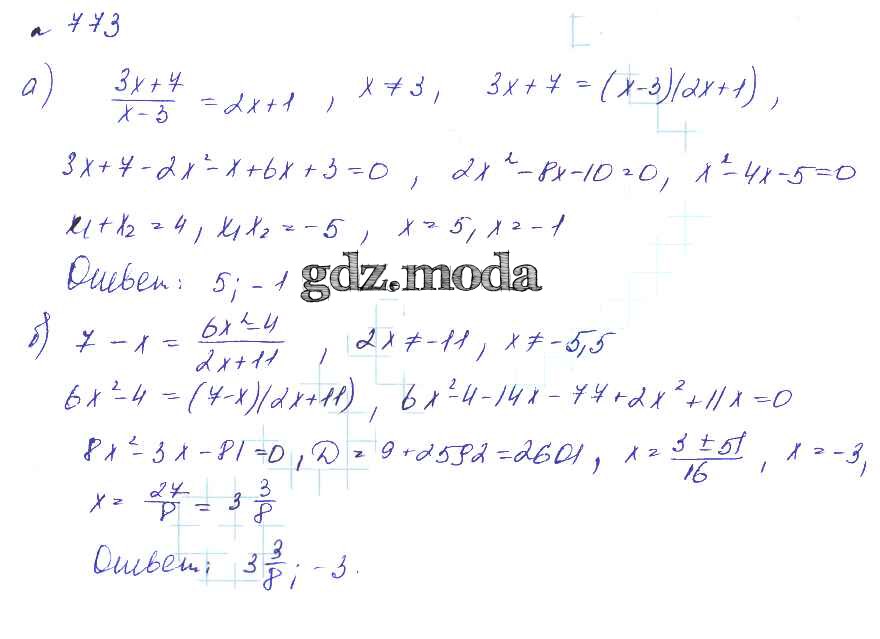 № 773
а) (3x+7)/(x-3) = 2x+1 , x ≠ 3, 3x+7 = (x-3)(2x+1) ,
3x+7-2x²-x+6x+3=0 , 2x²-8x-10=0, x²-4x-5=0
x₁+x₂=4, x₁x₂=-5 , x=5, x=-1
Ответ: 5; -1
gdz.moda
б) 7-x = (6x²-4)/(2x+11) , 2x≠-11, x≠-5,5
6x²-4=(7-x)(2x+11) , 6x²-4-14x-77+2x²+11x=0
8x²-3x-81=0, D=9+2592=2601, x=(3±51)/16 , x=-3,
x= 27/8 = 3 3/8
Ответ: 3 3/8; -3.